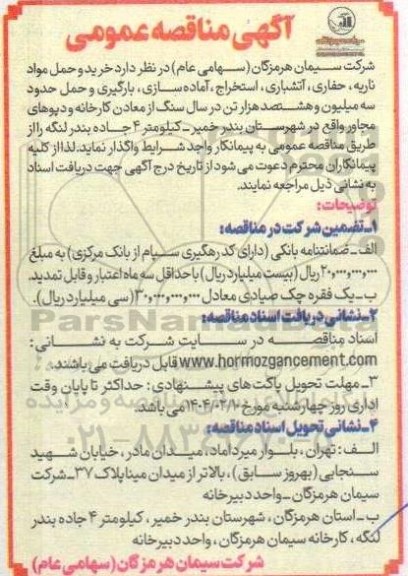 آگهی مناقصه عمومی
شرکت سیمان هرمزگان (سهامی عام) در نظر دارد خرید و حمل مواد
ناریه، حفاری، آتشباری، استخراج، آماده سازی، بارگیری و حمل حدود
سه میلیون و هشتصد هزار تن در سال سنگ از معادن کارخانه و دپوهای
مجاور واقع در شهرستان بندر خمیر ـ کیلومتر ۴ جاده بندر لنگه را از
طریق مناقصه عمومی به پیمانکار واجد شرایط واگذار نماید. لذا از کلیه
پیمانکاران محترم دعوت می شود از تاریخ درج آگهی جهت دریافت اسناد
به نشانی ذیل مراجعه نمایند.
توضیحات:
۱ـ تضمین شرکت در مناقصه:
الف ـ ضمانتنامه بانکی (دارای کد رهگیری سپام از بانک مرکزی) به مبلغ
۲۰,۰۰۰,۰۰۰,۰۰۰ ریال (بیست میلیارد ریال) با حداقل سه ماه اعتبار و قابل تمدید.
ب ـ یک فقره چک صیادی معادل ۳۰,۰۰۰,۰۰۰,۰۰۰ (سی میلیارد ریال).
۲ـ نشانی دریافت اسناد مناقصه:
اسناد مناقصه در سایت شرکت به نشانی:
www.hormozgancement.com قابل دریافت می باشند.
۳ـ مهلت تحویل پاکت های پیشنهادی: حداکثر تا پایان وقت
اداری روز چهارشنبه مورخ ۱۴۰۴/۰۲/۱۰ می باشد.
۴ـ نشانی تحویل اسناد مناقصه:
الف: تهران، بلوار میرداماد، میدان مادر، خیابان شهید
سنجابی (بهروز سابق)، بالاتر از میدان مینا پلاک ۳۷ ـ شرکت
سیمان هرمزگان ـ واحد دبیرخانه
ب ـ استان هرمزگان، شهرستان بندر خمیر، کیلومتر ۴ جاده بندر
لنگه، کارخانه سیمان هرمزگان، واحد دبیرخانه
شرکت سیمان هرمزگان (سهامی عام)